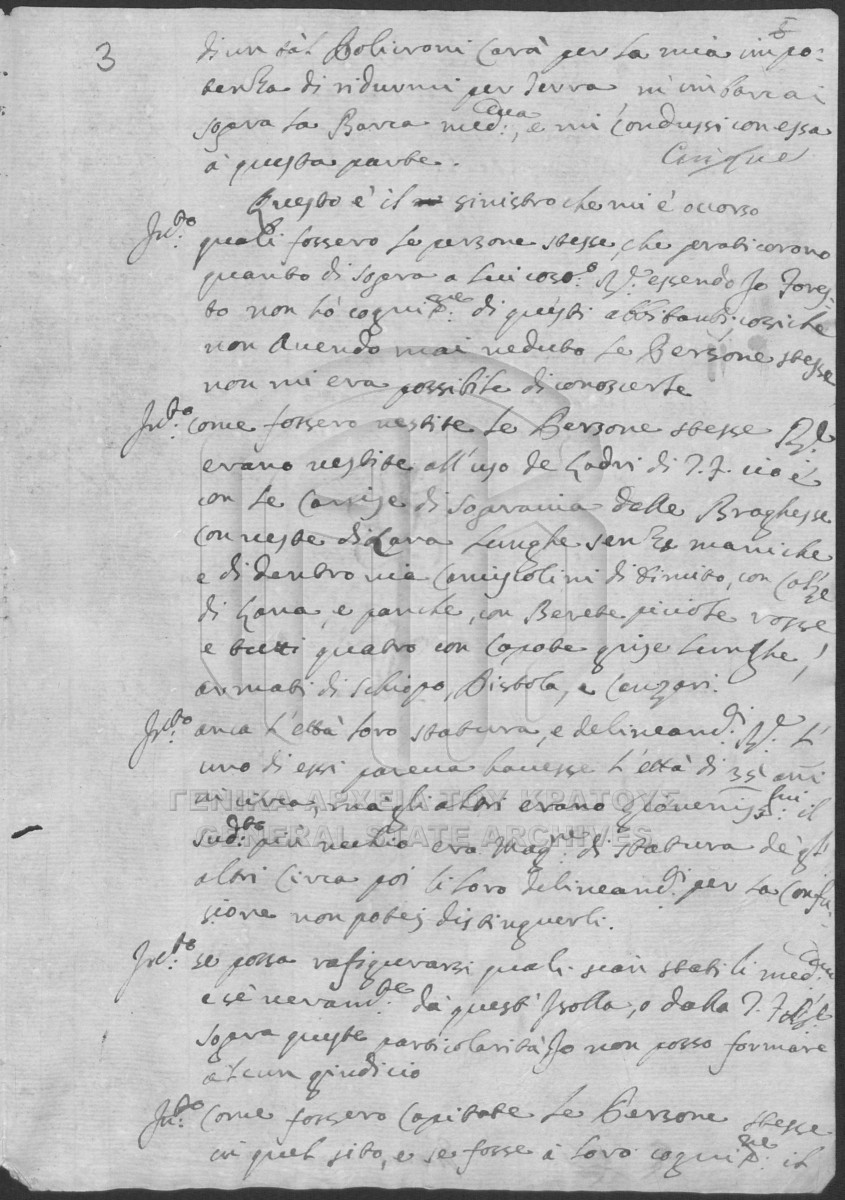 3
5
di un tal Policroni Carà per la mia impo-
tenza di ridurmi per Terra m'imbarcai
sopra la Barca med:ma, e mi condussi con essa
à questa parte. Cinque
Questo è il sinistro che mi è occorso
Int:to quali fossero le persone stesse, che praticorono
quanto di sopra a lui cost:o R:de essendo Io Fores-
to non hò cogni:ne di questi abbitanti, cosiche
non avendo mai veduto le Persone stesse
non mi era possibile di conoscerle
Int:to come fossero vestite le Persone stesse R:de
erano vestite all'uso de Ladri di T. F. cioè
con le Camise di sopravia dalle Braghesse
con veste di Lana lunghe senza maniche
e di dentro via Camisiolini di dimito, con Calze
di Lana, e papuche, con Berete piciole rosse
e tutti quatro con Capote grise lunghe,
armati di schiopo, Pistola, e Canzari.
Int:to anca l'ettà loro statura, e delineam:ti R:de L'
uno di essi pareva havesse l'ettà di 35 anni
in circa, mà gli altri erano giovenissimi il
sud:to più vechio era mag:re di statura de gl'
altri Circa poi li loro delineam:ti per la confu-
sione non potei distinguerli.
Int:to se possa rafigurarsi quali sian stati li med:mi
e se veram:te da quest'Isolla, o dalla T. F. R:de
sopra queste particolarità Io non posso formare
alcun giudicio
Int:to Come fossero capitate le Persone stesse
in quel sito, e se fosse à loro cogni:ne il
ΓΕΝΙΚΑ ΑΡΧΕΙΑ ΤΟΥ ΚΡΑΤΟΥΣ
GENERAL STATE ARCHIVES